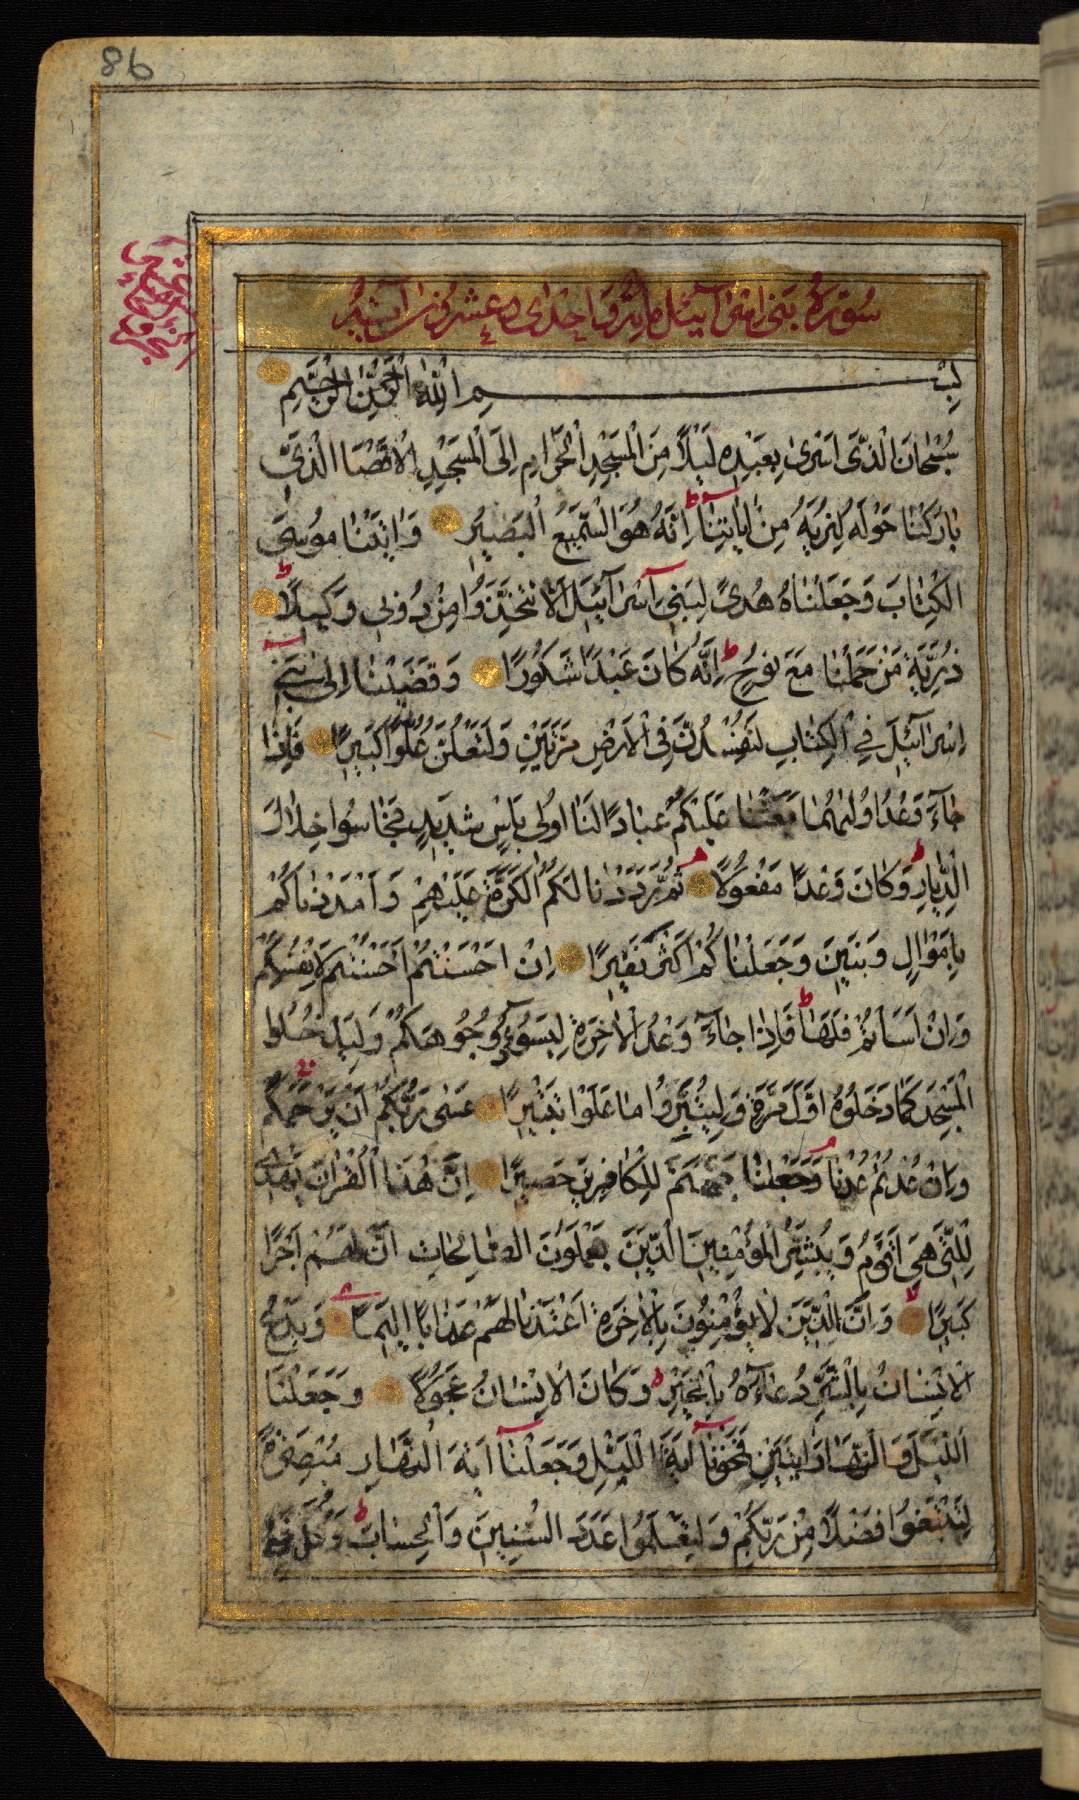 86
سورة بنی اسرآئیل مائة و احدی عشر آیة
بسم الله الرحمن الرحیم
سُبْحَانَ الَّذِی اَسْرٰی بِعَبْدِهِ لَیْلًا مِنَ الْمَسْجِدِ الْحَرَامِ اِلَی الْمَسْجِدِ الْاَقْصَا الَّذِی
بَارَکْنَا حَوْلَهُ لِنُرِیَهُ مِنْ اٰیَاتِنَا اِنَّهُ هُوَ السَّمِیعُ الْبَصِیرُ وَاٰتَیْنَا مُوسَی
الْکِتَابَ وَجَعَلْنَاهُ هُدًی لِبَنِی اِسْرَآئِیلَ اَلَّا تَتَّخِذُوا مِنْ دُونِی وَکِیلًا
ذُرِّیَّةَ مَنْ حَمَلْنَا مَعَ نُوحٍ اِنَّهُ کَانَ عَبْدًا شَکُورًا وَقَضَیْنَا اِلٰی بَنِی
اِسْرَآئِیلَ فِی الْکِتَابِ لَتُفْسِدُنَّ فِی الْاَرْضِ مَرَّتَیْنِ وَلَتَعْلُنَّ عُلُوًّا کَبِیرًا فَاِذَا
جَآءَ وَعْدُ اُولٰیهُمَا بَعَثْنَا عَلَیْکُمْ عِبَادًا لَنَا اُولِی بَاْسٍ شَدِیدٍ فَجَاسُوا خِلَالَ
الدِّیَارِ وَکَانَ وَعْدًا مَفْعُولًا ثُمَّ رَدَدْنَا لَکُمُ الْکَرَّةَ عَلَیْهِمْ وَاَمْدَدْنَاکُمْ
بِاَمْوَالٍ وَبَنِینَ وَجَعَلْنَاکُمْ اَکْثَرَ نَفِیرًا اِنْ اَحْسَنْتُمْ اَحْسَنْتُمْ لِاَنْفُسِکُمْ
وَاِنْ اَسَاْتُمْ فَلَهَا فَاِذَا جَآءَ وَعْدُ الْاٰخِرَةِ لِیَسُوءُوا وُجُوهَکُمْ وَلِیَدْخُلُوا
الْمَسْجِدَ کَمَا دَخَلُوهُ اَوَّلَ مَرَّةٍ وَلِیُتَبِّرُوا مَا عَلَوْا تَتْبِیرًا عَسٰی رَبُّکُمْ اَنْ یَرْحَمَکُمْ
وَاِنْ عُدْتُمْ عُدْنَا وَجَعَلْنَا جَهَنَّمَ لِلْکَافِرِینَ حَصِیرًا اِنَّ هٰذَا الْقُرْاٰنَ یَهْدِی
لِلَّتِی هِیَ اَقْوَمُ وَیُبَشِّرُ الْمُؤْمِنِینَ الَّذِینَ یَعْمَلُونَ الصَّالِحَاتِ اَنَّ لَهُمْ اَجْرًا
کَبِیرًا وَاَنَّ الَّذِینَ لَا یُؤْمِنُونَ بِالْاٰخِرَةِ اَعْتَدْنَا لَهُمْ عَذَابًا اَلِیمًا وَیَدْعُ
الْاِنْسَانُ بِالشَّرِّ دُعَآءَهُ بِالْخَیْرِ وَکَانَ الْاِنْسَانُ عَجُولًا وَجَعَلْنَا
اللَّیْلَ وَالنَّهَارَ اٰیَتَیْنِ فَمَحَوْنَا اٰیَةَ اللَّیْلِ وَجَعَلْنَا اٰیَةَ النَّهَارِ مُبْصِرَةً
لِتَبْتَغُوا فَضْلًا مِنْ رَبِّکُمْ وَلِتَعْلَمُوا عَدَدَ السِّنِینَ وَالْحِسَابَ وَکُلَّ شَیْءٍ